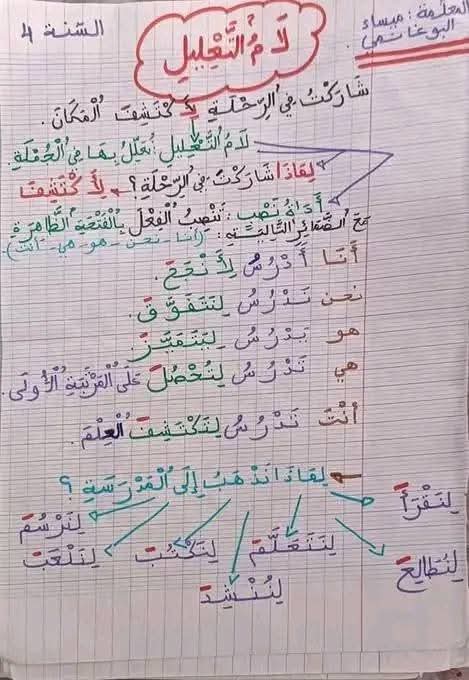 المعلمة : ميساء
البوغانمي
السّنة 4
لَامُ التَّعْلِيلِ
شَارَكْتُ فِي الرِّحْلَةِ لِأَكْتَشِفَ الْمَكَانَ.
لَامُ التَّعْلِيلِ : نُعَلِّلُ بِهَا فِي الْجُمْلَةِ.
لِمَاذَا شَارَكْتُ فِي الرِّحْلَةِ؟ لِأَكْتَشِفَ
أَدَاةُ نَصْبٍ : تَنْصِبُ الْفِعْلَ بِالْفَتْحَةِ الظَّاهِرَةِ
مَعَ الضَّمَائِرِ التَّالِيَةِ : (أنا - نحن - هو - هي - أنت).
أَنَا أَدْرُسُ لِأَنْجَحَ.
نحن نَدْرُسُ لِنَتَفَوَّقَ.
هو يَدْرُسُ لِيَتَمَيَّزَ.
هي تَدْرُسُ لِتَحْصُلَ عَلَى الْمَرْتَبَةِ الْأُولَى.
أَنْتَ تَدْرُسُ لِتَكْتَشِفَ الْعِلْمَ.
لِمَاذَا نَذْهَبُ إِلَى الْمَدْرَسَةِ ؟
لِنَقْرَأَ
لِنَرْسُمَ
لِنَتَعَلَّمَ
لِنَكْتُبَ
لِنَلْعَبَ
لِنُطَالِعَ
لِنُنْشِدَ